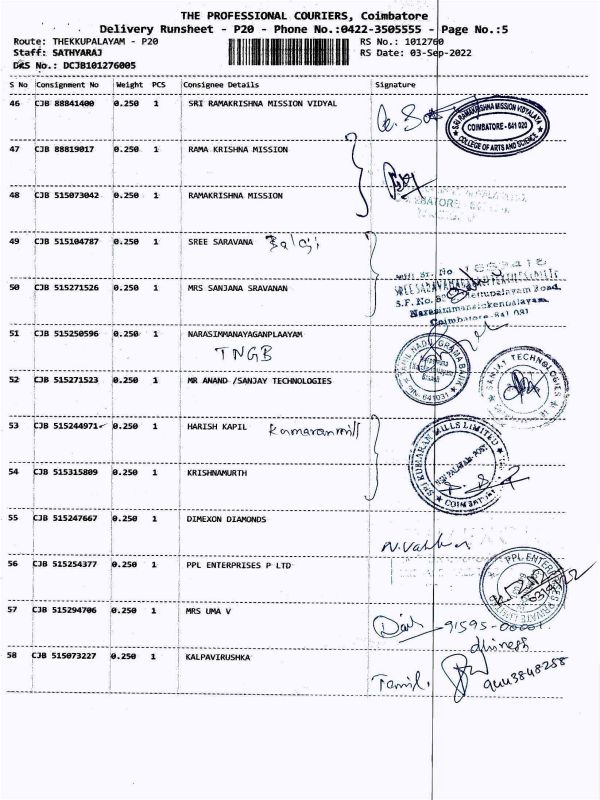 THE PROFESSIONAL COURIERS, Coimbatore
Delivery Runsheet - P20 - Phone No.:0422-3505555 - Page No.:5
Route: THEKKUPALAYAM - P20 RS No.: 1012760
Staff: SATHYARAJ RS Date: 03-Sep-2022
DRS No.: DCJB101276005
S No Consignment No Weight PCS Consignee Details Signature
46 CJB 88841400 0.250 1 SRI RAMAKRISHNA MISSION VIDYAL
SRI RAMAKRISHNA MISSION VIDYALAYA
COIMBATORE - 641 020
COLLEGE OF ARTS AND SCIENCE
47 CJB 88819017 0.250 1 RAMA KRISHNA MISSION
48 CJB 515073042 0.250 1 RAMAKRISHNA MISSION
49 CJB 515104787 0.250 1 SREE SARAVANA Balaji
50 CJB 515271526 0.250 1 MRS SANJANA SRAVANAN
Narasimmanaickenpalayam
Coimbatore-641 031
51 CJB 515250596 0.250 1 NARASIMMANAYAGANPLAAYAM
TNGB
TAMIL NADU GRAMA BANK
PIN- 641031
52 CJB 515271523 0.250 1 MR ANAND /SANJAY TECHNOLOGIES
SANJAY TECHNOLOGIES
53 CJB 515244971 0.250 1 HARISH KAPIL Kumaran mill
SRI KUMARAN MILLS LIMITED
COIMBATORE
54 CJB 515315809 0.250 1 KRISHNAMURTH
55 CJB 515247667 0.250 1 DIMEXON DIAMONDS
56 CJB 515254377 0.250 1 PPL ENTERPRISES P LTD
PPL ENTERPRISES PRIVATE LIMITED
57 CJB 515294706 0.250 1 MRS UMA V
91595-00001
dhinesh
58 CJB 515073227 0.250 1 KALPAVIRUSHKA
Tamil.